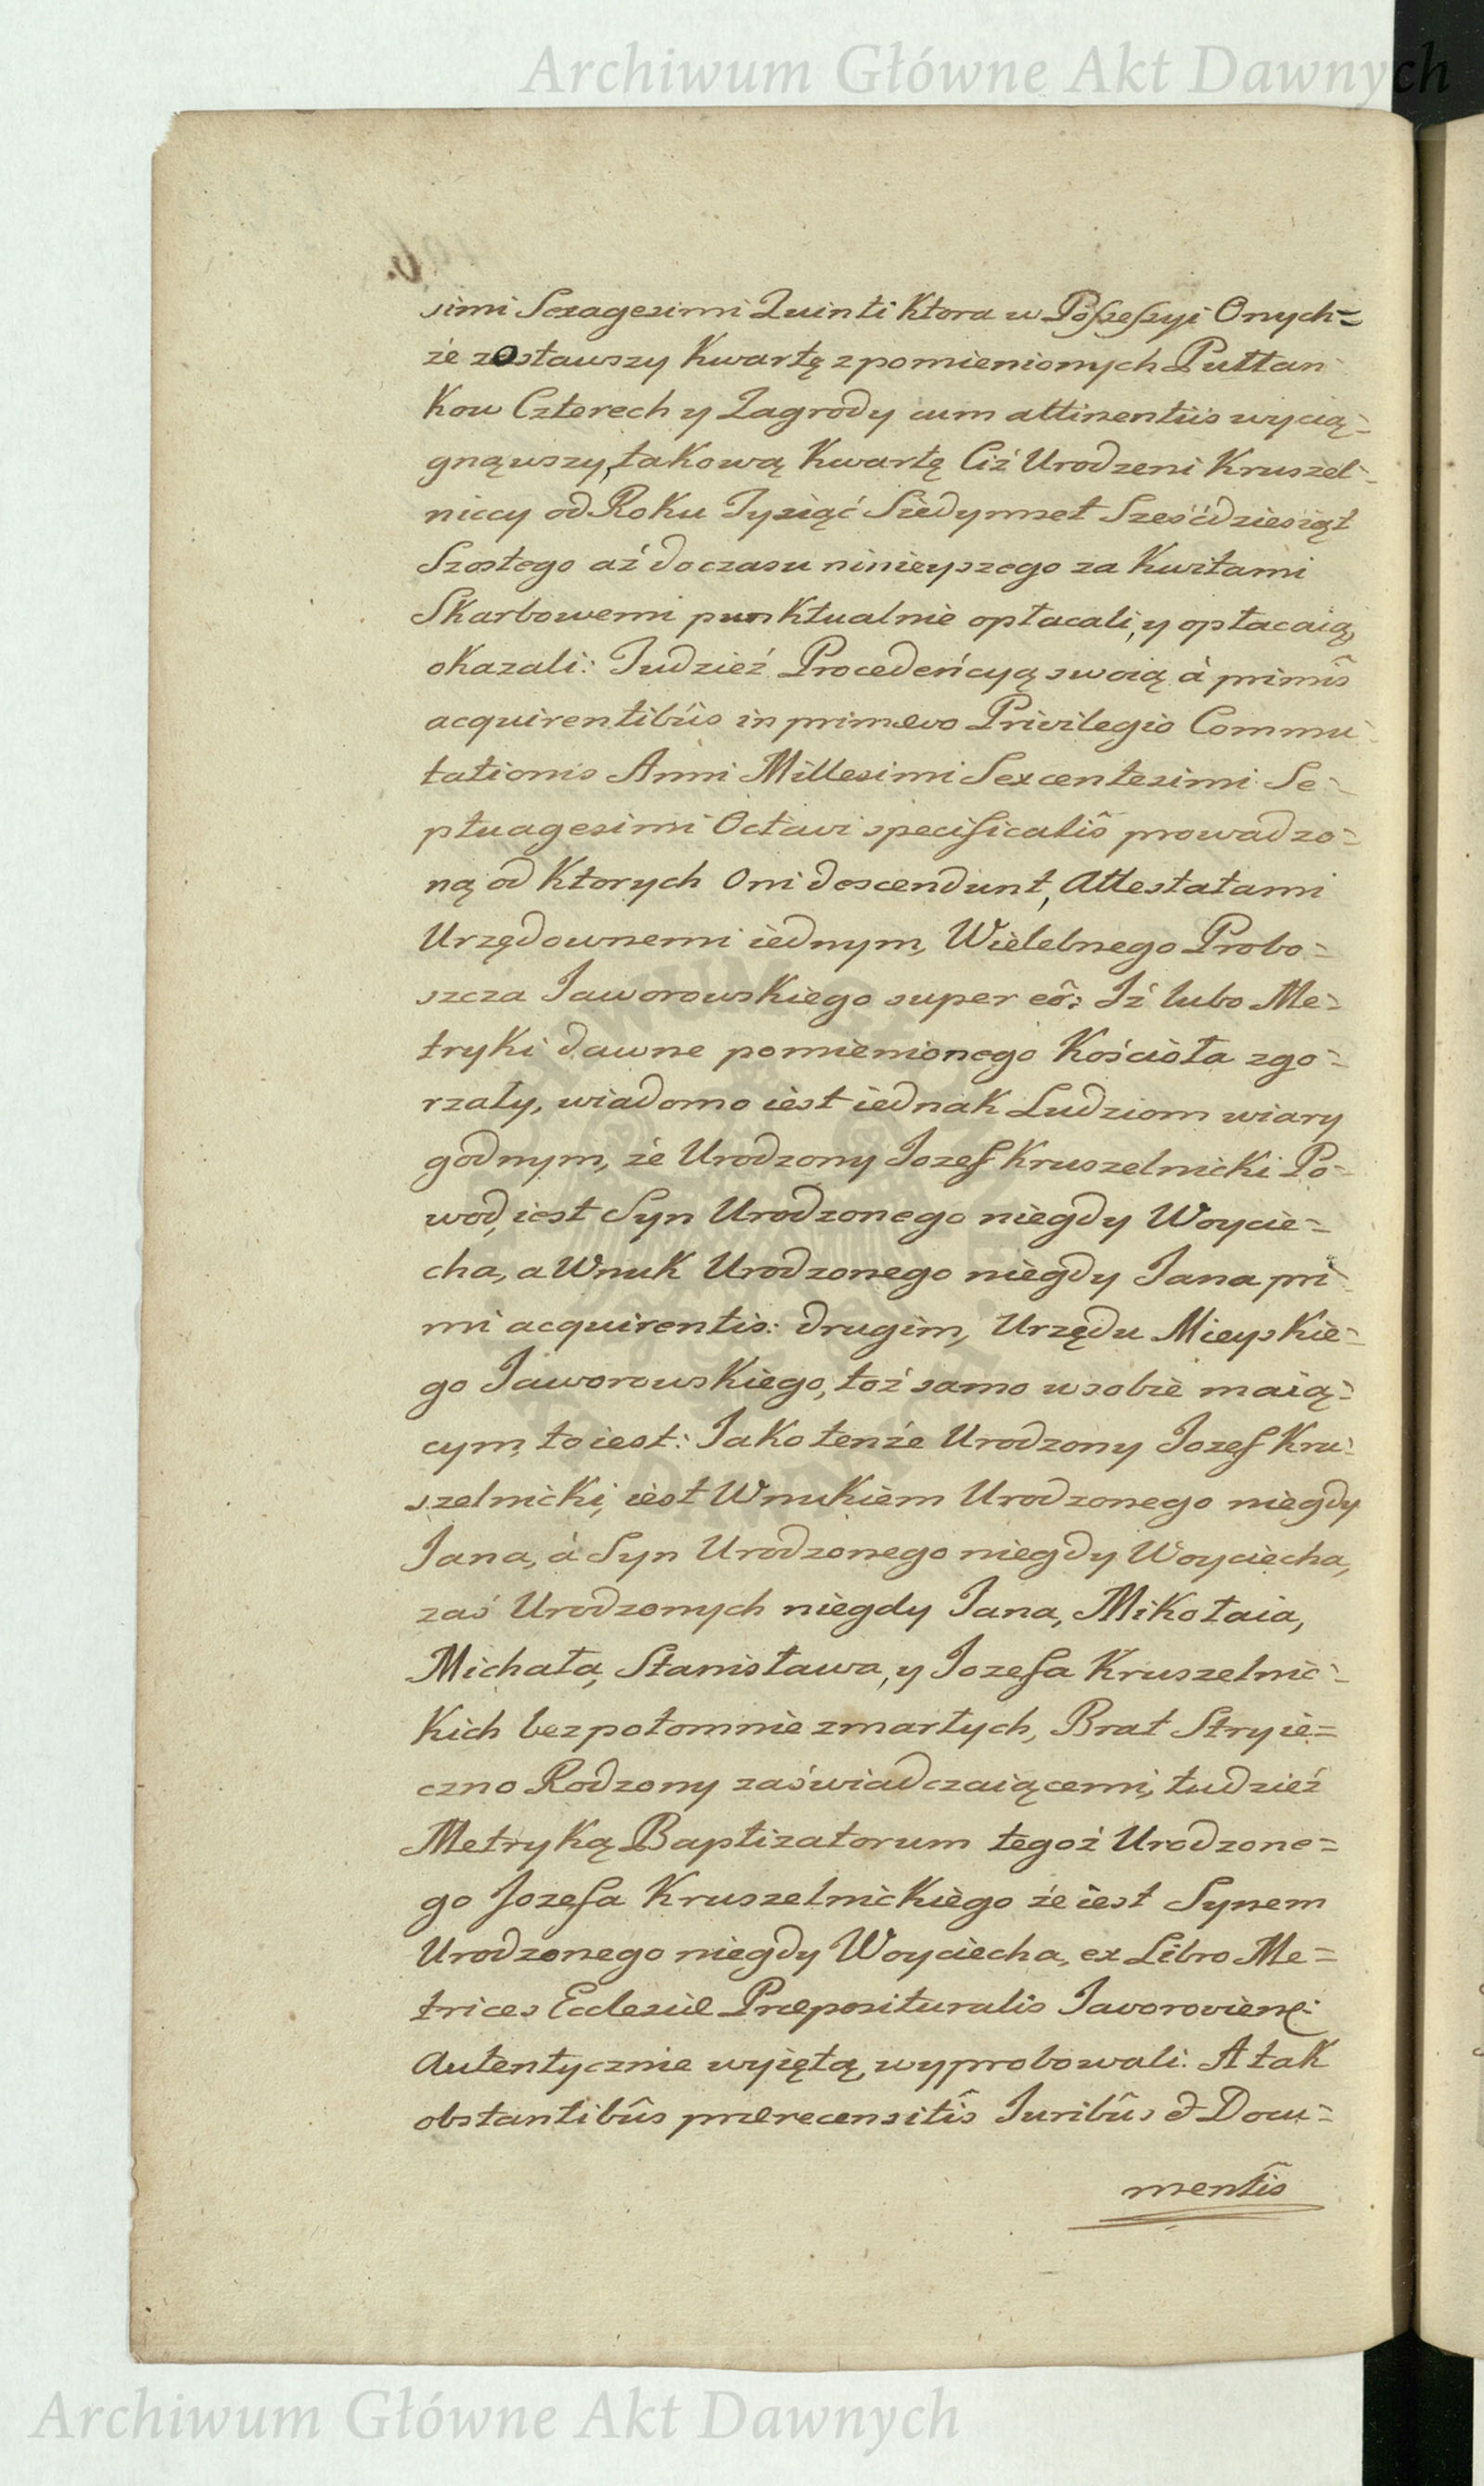 Archiwum Główne Akt Dawnych
simi Sexagesimi Quinti Ktora w Possessyi Onych=
że zostawszy Kwartę z pomienionych Pułłan
Kow Czterech y Zagrody cum attinentiis wycią=
gnąwszy, takową Kwartę Ciż Urodzeni Kruszel=
niccy od Roku Tysiąć Siedymset Sześćdziesiąt
Szostego aż do czasu ninieyszego za Kwitami
Skarbowemi punktualnie opłacali, y opłacaią,
okazali: Tudzież Procedeńcyą swoią à primîs
acquirentibûs in primævo Privilegio Commu=
tationis Anni Millesimi Sexcentesimi Se=
ptuagesimi Octavi specificatîs prowadzo=
ną od Ktorych Oni descendunt, Attestatami
Urzędownemi iednym, Wielebnego Probo=
szcza Jaworowskiego super eô: Iż lubo Me=
tryki dawne pomienionego Kościoła zgo=
rzały, wiadomo iest iednak Ludziom wiary
godnym, że Urodzony Jozef Kruszelnicki Po=
wod, iest Syn Urodzonego niegdy Woycie=
cha, a Wnuk Urodzonego niegdy Jana pri=
mi acquirentis: drugim, Urzędu Mieyskie=
go Jaworowskiego, toż samo w sobie maią=
cym, to iest: Jako tenże Urodzony Jozef Kru=
szelnicki, iest Wnukiem Urodzonego niegdy
Jana, à Syn Urodzonego niegdy Woyciecha,
zaś Urodzonych niegdy Jana, Mikołaia,
Michała, Stanisława, y Jozefa Kruszelnic=
Kich bezpotomnie zmarłych, Brat Stryie=
czno Rodzony zaświadczaiącemi, tudzież
Metryką Baptizatorum tegoż Urodzone=
go Jozefa Kruszelnickiego że iest Synem
Urodzonego niegdy Woyciecha, ex Libro Me=
trices Ecclesiæ Præposituralis Javoroviens:
Autentycznie wyiętą, wyprobowali. A tak
obstantibûs prærecensitîs Juribûs & Docu=
mentîs
Archiwum Główne Akt Dawnych